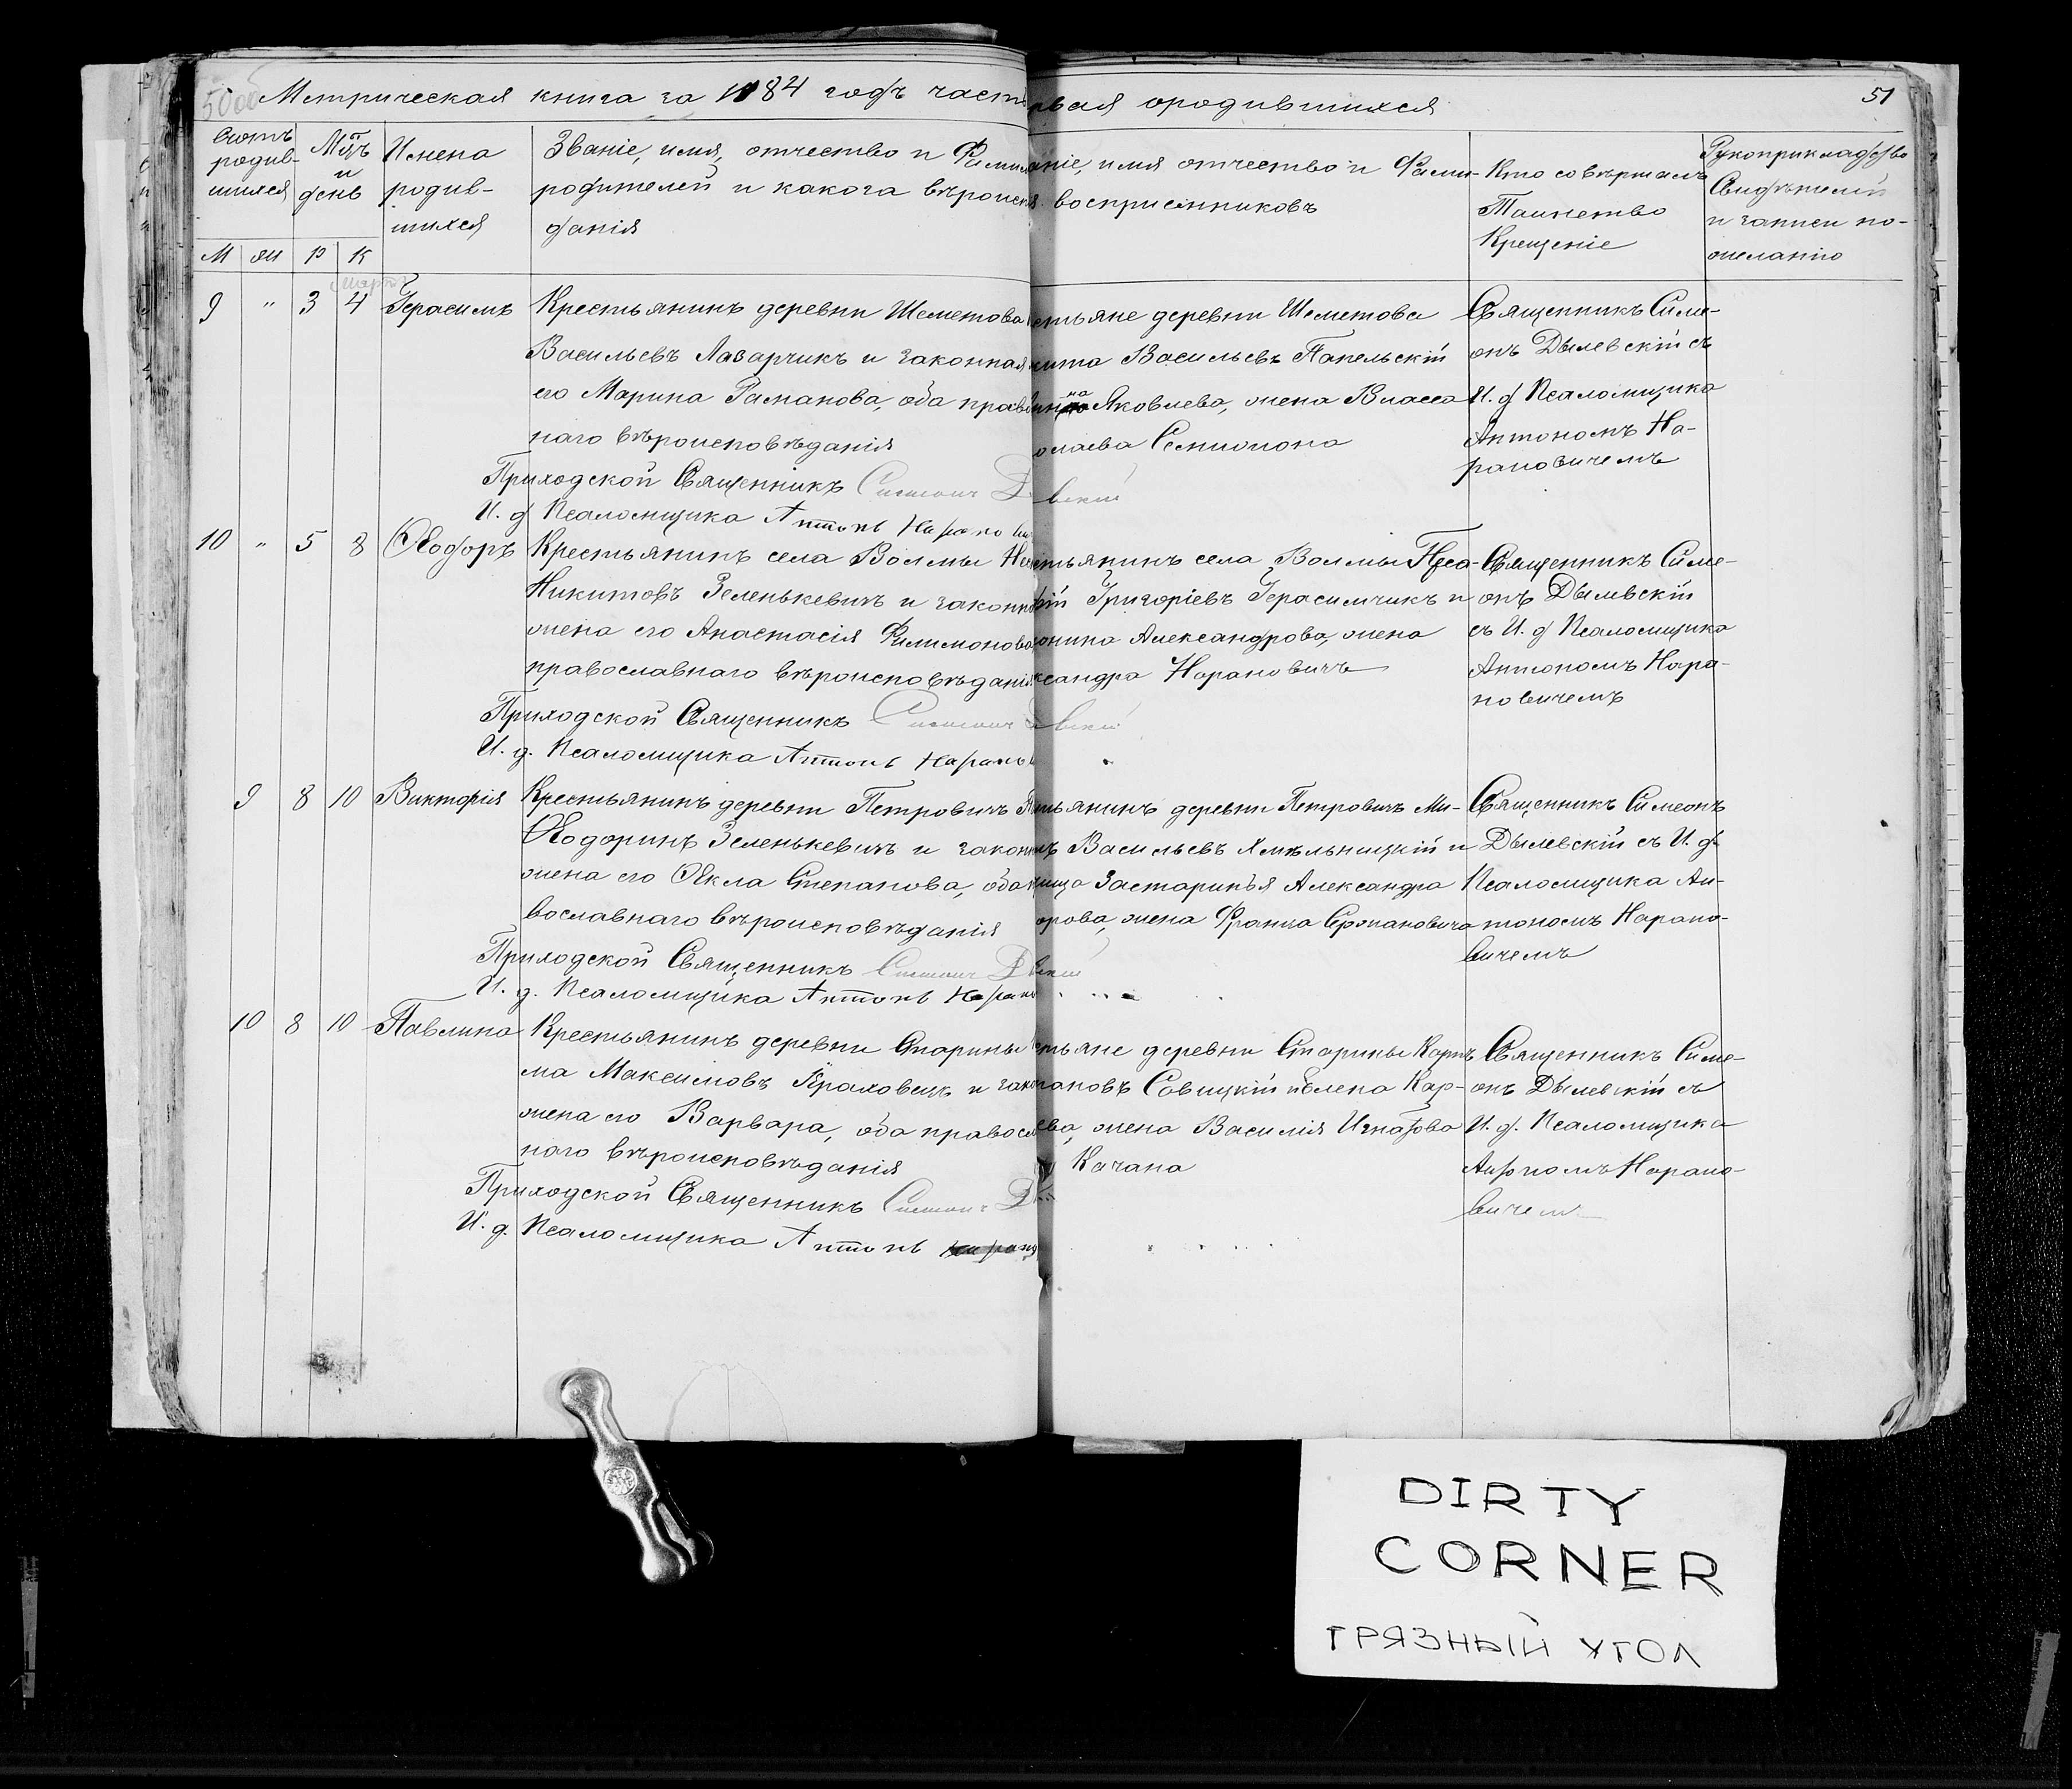 Метрическая книга за 1884 годъ часть
рвая о родившихся
51
Счотъ родив-шихся
Мцъ и день
Имена родив-шихся
Званіе, имя, отчество и Фамил
родителей и какога вѣроисп
данія
аніе, имя отчество и Фами-
воспріемниковъ
Кто совѣршалъ
Таинство
Крещеніе
Рукоприкладство
Свидѣтелей
и записи по-
желанію
М жи Р К
Мартъ
9 " 3 4 Герасимъ
Крестьянинъ деревни Шеметова
Васильевъ Лазарчикъ и законная
его Марина Раманова, оба прав
наго вѣроисповѣданія
Приходской Священникъ Симеонъ
И. д Псаломщика Антонъ
естьяне деревни Шеметова
кита Васильевъ Папельскій
на Яковлева, жена Власса
олаева
Священникъ Симе-
онъ Дылевскій съ
И. д Псаломщика
Антономъ На-
рановичемъ
10 " 5 8 Ѳеодоръ
Крестьянинъ села Волмы
Никитовъ Зеленькевичъ и законн
жена его Анастасія Филимонова
православнаго вѣроисповѣданія
Приходской Священникъ Симеонъ
И. д. Псаломщика Антонъ
стьянинъ села Волмы
Григоріевъ Герасимчикъ и
онина Александрова, жена
ксандра Нарановичъ
Священникъ Симе-
онъ Дылевскій
съ И. д Псаломщика
Антономъ Нара-
новичемъ
9 8 10 Викторія
Крестьянинъ деревни Петровичъ
Ѳеодоринъ Зеленькевичъ и закон
жена его Ѳекла Степанова, оба
вославнаго вѣроисповѣданія
Приходской Священникъ Симеонъ
И. д. Псаломщика Антонъ Наран
тьянинъ деревни Петровичъ Ми-
лъ Васильевъ и
Застаринья Александра
орова, жена Франца
Священникъ Симеонъ
Дылевскій съ И. д
Псаломщика Ан-
тономъ Нарано-
вичемъ
10 8 10 Павлина
Крестьянинъ деревни Старины
ма Максимовъ и зако
жена его Варвара, оба правосл
наго вѣроисповѣданія
Приходской Священникъ Симеонъ
И. д. Псаломщика Антонъ
стьяне деревни Старины Карпъ
пановъ Савицкій и Елена Кар-
ева, жена Василія Игнатова
Качана
Священникъ Симе-
онъ Дылевскій съ
И. д. Псаломщика
Антономъ Нарано-
вичемъ
DIRTY
CORNER
ГРЯЗНЫЙ УГОЛ